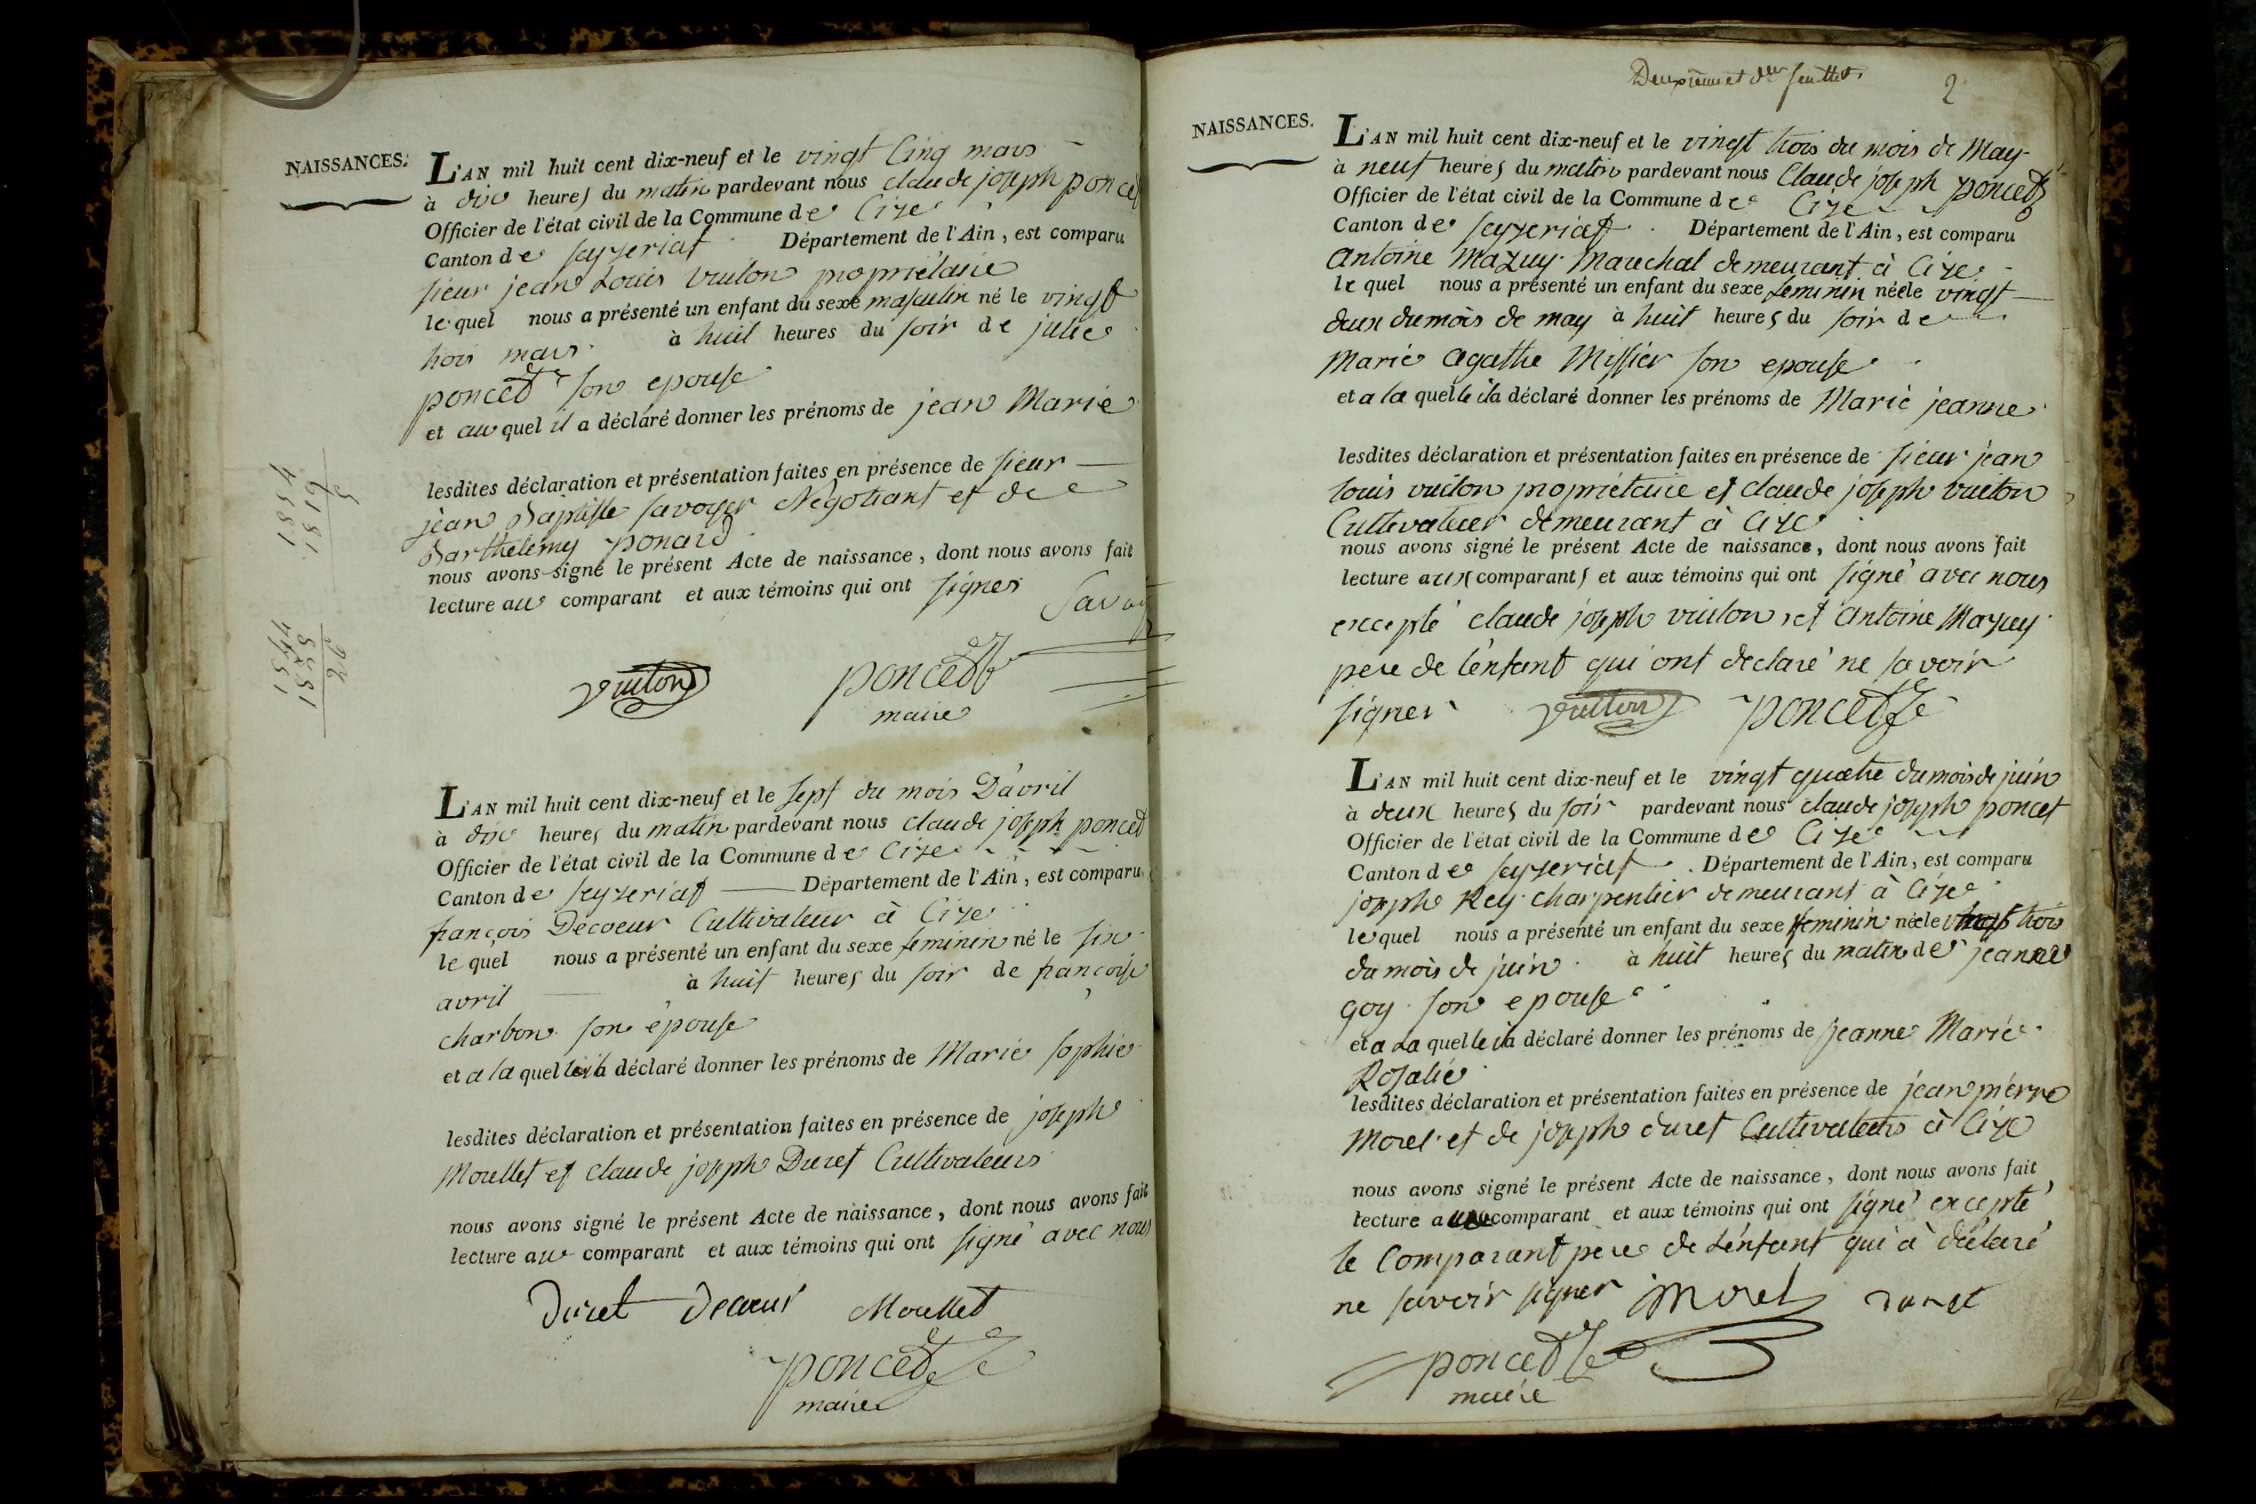 NAISSANCES.
L'AN mil huit cent dix-neuf et le vingt Cinq mars
à dix heures du matin pardevant nous claude joseph poncet
Officier de l'état civil de la Commune de Cize
Canton de seyzeriat Département de l'Ain, est comparu
sieur jean Louis vuiton propriétaire
le quel nous a présenté un enfant du sexe masculin né le vingt
trois mars à huit heures du soir de julie
poncet son epouse
et au quel il a déclaré donner les prénoms de jean Marie
lesdites déclaration et présentation faites en présence de sieur
jean Baptiste savoyer Négotiant et de
Barthelemy ponard
nous avons signé le présent Acte de naissance, dont nous avons fait
lecture au comparant et aux témoins qui ont signer Savoy
vuiton poncet
maire
L'AN mil huit cent dix-neuf et le sept du mois D'avril
à dix heures du matin pardevant nous claude joseph poncet
Officier de l'état civil de la Commune de Cize
Canton de seyzeriat Département de l'Ain, est comparu
françois Decoeur Cultivateur à Cize
le quel nous a présenté un enfant du sexe feminin né le six
avril à huit heures du soir de françoise
charbon son épouse
et a la quelle il a déclaré donner les prénoms de Marie sophie
lesdites déclaration et présentation faites en présence de joseph
Morellet et claude joseph Duret Cultivateurs
nous avons signé le présent Acte de naissance, dont nous avons fait
lecture au comparant et aux témoins qui ont signé avec nous
Duret Decoeur Morellet
poncet
maire
Deuxième et der feuillet.
2
NAISSANCES.
L'AN mil huit cent dix-neuf et le vingt trois du mois de May
à neuf heures du matin pardevant nous Claude joseph poncet
Officier de l'état civil de la Commune de Cize
Canton de seyzeriat Département de l'Ain, est comparu
antoine Mazuy Marechal demeurant à Cize
le quel nous a présenté un enfant du sexe feminin née le vingt
deux du mois de may à huit heures du soir de
Marie agathe Missier son epouse
et a la quelle il a déclaré donner les prénoms de Marie jeanne
lesdites déclaration et présentation faites en présence de sieur jean
louis vuiton propriétaire et claude joseph vuiton
Cultivateur demeurant à Cize
nous avons signé le présent Acte de naissance, dont nous avons fait
lecture aux comparants et aux témoins qui ont signé avec nous
excepté claude joseph vuiton et antoine Mazuy
pere de l'enfant qui ont declaré ne savoir
signer vuiton poncet
L'AN mil huit cent dix-neuf et le vingt quatre du mois de juin
à deux heures du soir pardevant nous claude joseph poncet
Officier de l'état civil de la Commune de Cize
Canton de seyzeriat Département de l'Ain, est comparu
joseph Rey charpentier demeurant à Cize
le quel nous a présenté un enfant du sexe feminin née le vingt trois
du mois de juin à huit heures du matin de jeanne
goy son epouse
et a la quelle il a déclaré donner les prénoms de jeanne Marie
Rosalie
lesdites déclaration et présentation faites en présence de jean pierre
Morel et de joseph duret Cultivateurs à Cize
nous avons signé le présent Acte de naissance, dont nous avons fait
lecture au comparant et aux témoins qui ont signé excepté
le Comparant père de l'énfant qui à déclaré
ne savoir signer Morel duret
poncet
maire